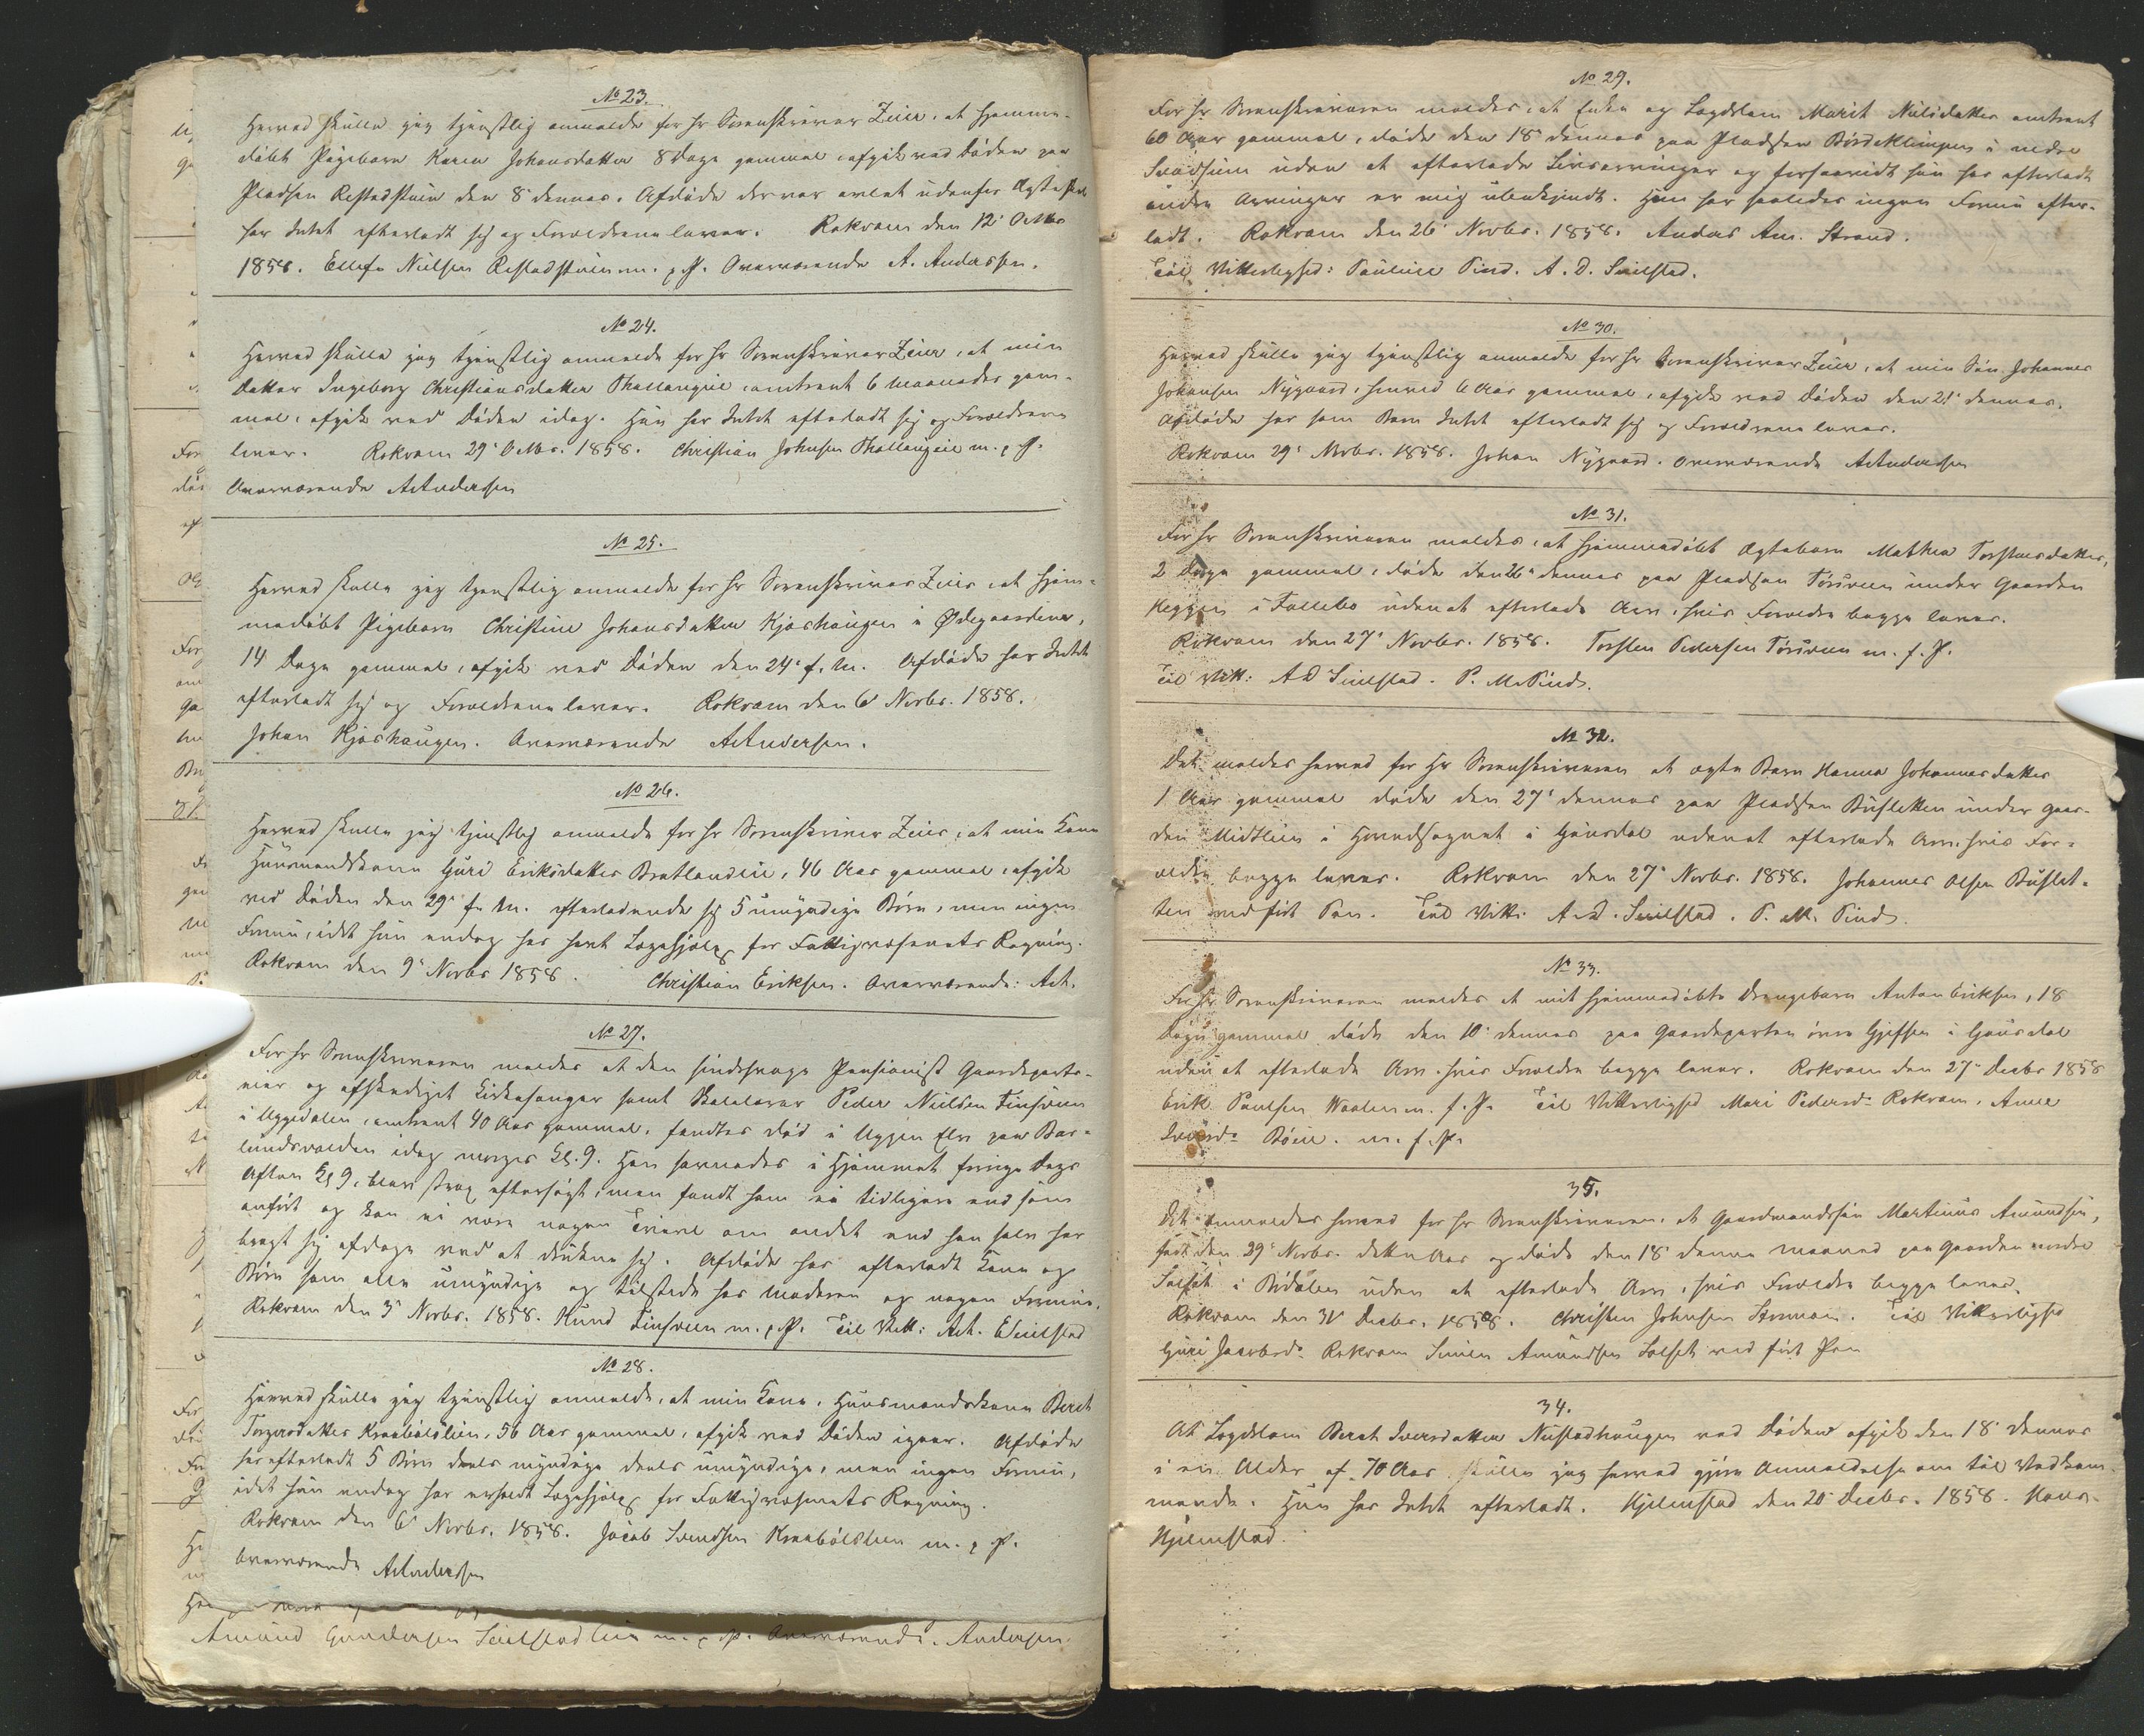 No 23.
Herved skulle jeg tjenstlig anmelde for Hr Sorenskriver Zeier, at hjemme-
døbt Pigebarn Karen Johansdatter 8 Dage gammel, afgik ved Døden paa
Pladsen Restadstuen den 8de dennes. Afdøde der var avlet udenfor Ægteskab
har Intet efterladt sig og Forældrene lever. Rokvam den 12te Octbr
1858. Ellef Nielsen Restadstuen m. p. P. Overværende A. Anderssen.
No 24.
Herved skulle jeg tjenstlig anmelde for Hr Sorenskriver Zeier, at min
Datter Ingeborg Christiansdatter Thallaugeie omtrent 6 Maaneder gam-
mel, afgik ved Døden idag. Hun har Intet efterladt sig og Forældrene
lever. Rokvam 29de Octbr. 1858. Christian Johnsen Thallaugeie m. p. P.
Overværende A Andersen
No 25.
Herved skulle jeg tjenstlig anmelde for Hr Sorenskriver Zeier, at hjem-
medøbt Pigebarn Christine Johansdatter Kjoshaugen i Ødegaardene,
14 Dage gammel, afgik ved Døden den 24de f. M. Afdøde har Intet
efterladt sig og Forældrene lever. Rokvam den 6te Novbr. 1858.
Johan Kjoshaugen. Overværende A Andersen.
No 26.
Herved skulle jeg tjenstlig anmelde for Hr Sorenskriver Zeier, at min Kone
Huusmandskone Guri Eriksdatter Bratlandeie, 46 Aar gammel, afgik
ved Døden den 29de f. M. efterladende sig 5 umyndige Børn, men ingen
Formue, idet hun endog har havt Lægehjælp for Fattigvæsenets Regning.
Rokvam den 9de Novbr 1858. Christian Eriksen. Overværende: AA.
No 27.
For Hr Sorenskriveren meldes at den sindssvage Pensionist Gaardeparts-
eier og afskediget Kirkesanger samt Skolelærer Peder Nielsen Linsveen
i Uggedalen, omtrent 40 Aar gammel, fandtes død i Uggen Elv paa Bar-
lundsvolden idag morges Kl. 9. Han savnedes i Hjemmet forrige Dags
Aften Kl 9, blev strax eftersøgt, men fandt ham ei tidligere end som
anført og kan ei være nogen Tvivl om andet end han selv har
bragt sig afdage ved at drukne sig. Afdøde har efterladt Kone og
Børn som alle umyndige og tilstede hos Moderen og nogen Formue.
Rokvam den 3de Novbr. 1858. Knud Linsveen m. p. P. Til Vitt: AA. E Seielstad
No 28.
Herved skulle jeg tjenstlig anmelde, at min Kone, Huusmandskone Berit
Torgersdatter Kraabølslien, 56 Aar gammel, afgik ved Døden igaar. Afdøde
har efterladt 5 Børn deels myndige deels umyndige, men ingen Formue,
idet hun endog har erholdt Lægehjælp for Fattigvæsenets Regning.
Rokvam den 6te Novbr. 1858. Jacob Svendsen Kraabølslien m. p. P.
Overværende A Anderssen
Amund Gundersen Seielstadlien m. p. P. Overværende. Andersen.
No 29.
For Hr Sorenskriveren meldes, at Enke og Lægdslem Marit Nielsdatter omtrent
60 Aar gammel, døde den 18de dennes paa Pladsen Børdeklimpen i nedre
Svadsum uden at efterlade Livsarvinger og forsaavidt hun har efterladt
andre Arvinger er mig ubekjendt. Hun har saaledes ingen Formue efter-
ladt. Rokvam den 26de Novbr. 1858. Anders Am. Strand.
Til Vitterlighed: Pauline Pind. A. D. Seielstad.
No 30.
Herved skulle jeg tjenstlig anmelde for Hr Sorenskriver Zeier, at min Søn Johannes
Johansen Nygaard, henved 6 Aar gammel, afgik ved Døden den 21de dennes.
Afdøde har som Barn Intet efterladt sig og Forældrene lever.
Rokvam 29de Novbr. 1858. Johan Nygaard. Overværende A Andersen
No 31.
For Hr Sorenskriveren meldes, at hjemmedøbt Ægtebarn Mathea Torstensdatter,
2 Dage gammel, døde den 26de dennes paa Pladsen Tørsveen under Gaarden
Heggen i Follebo uden at efterlade Arv, hvis Forældre begge lever.
Rokvam den 27de Novbr. 1858. Torsten Pedersen Tørsveen m. f. P.
Til Vitt: A D Seielstad. P. M. Pind.
No 32.
Det meldes herved for Hr Sorenskriveren at ægte Barn Hanna Johannesdatter
1 Aar gammel døde den 27de dennes paa Pladsen Busletten under Gaar-
den Midtlien i Hovedsognet i Gausdal uden at efterlade Arv, hvis For-
ældre begge lever. Rokvam den 27de Novbr. 1858. Johannes Olsen Buslet-
ten ved ført Pen. Til Vitt. A. D. Seielstad. P. M. Pind.
No 33.
For Hr. Sorenskriveren meldes at mit hjemmedøbte Drengebarn Anton Eriksen, 18
Dage gammel døde den 10de dennes paa Gaardeparten øvre Gjefsen i Gausdal
uden at efterlade Arv. hvis Forældre begge lever. Rokvam den 27de Decbr 1858
Erik Paulsen Waalen m. f. P. Til Vitterlighed Mari Pedersdr Rokvam, Anne
Iversdr Bøeie. m. f. P.
35.
Det anmeldes herved for Hr Sorenskriveren, at Gaardmandssøn Martinus Amundsen,
født den 29de Novbr. dette Aar og døde den 18de denne Maaned paa Gaarden nordre
Solset i Bødalen uden at efterlade Arv, hvis Forældre begge lever.
Rokvam den 31te Decbr. 1858. Christen Johnsen Stormoen. Til Vitterlighed
Guri Jacobsdr Rokvam Simen Amundsen Solset ved ført Pen
34.
At Lægdslem Berit Iversdatter Nustadhaugen ved Døden afgik den 18de dennes
i en Alder af 70 Aar skulle jeg herved gjøre Anmeldelse om til Vedkom-
mende. Hun har Intet efterladt. Hjelmstad den 20de Decbr. 1858. Hans
Hjelmstad.